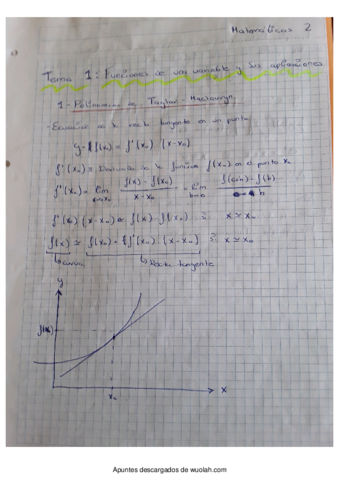 Matemáticas 2
Tema 1: Funciones de una variable y sus aplicaciones
1- Polinomios de Taylor - Maclaurin.
-Ecuación de la recta tangente en un punto
y - f(x₀) = f'(x₀) (x-x₀)
f'(x₀) = Derivada de la función f(x) en el punto x₀
f'(x₀) = lim f(x) - f(x₀) / x - x₀ = lim
f'(x₀) (x-x₀) ≃ f(x) - f(x₀) si x ≃ x₀
f(x) ≃ f(x₀) + f'(x₀) · (x-x₀) si x ≃ x₀
↳ curva ↳ Recta tangente
y
f(x₀)
x₀
x
Apuntes descargados de wuolah.com